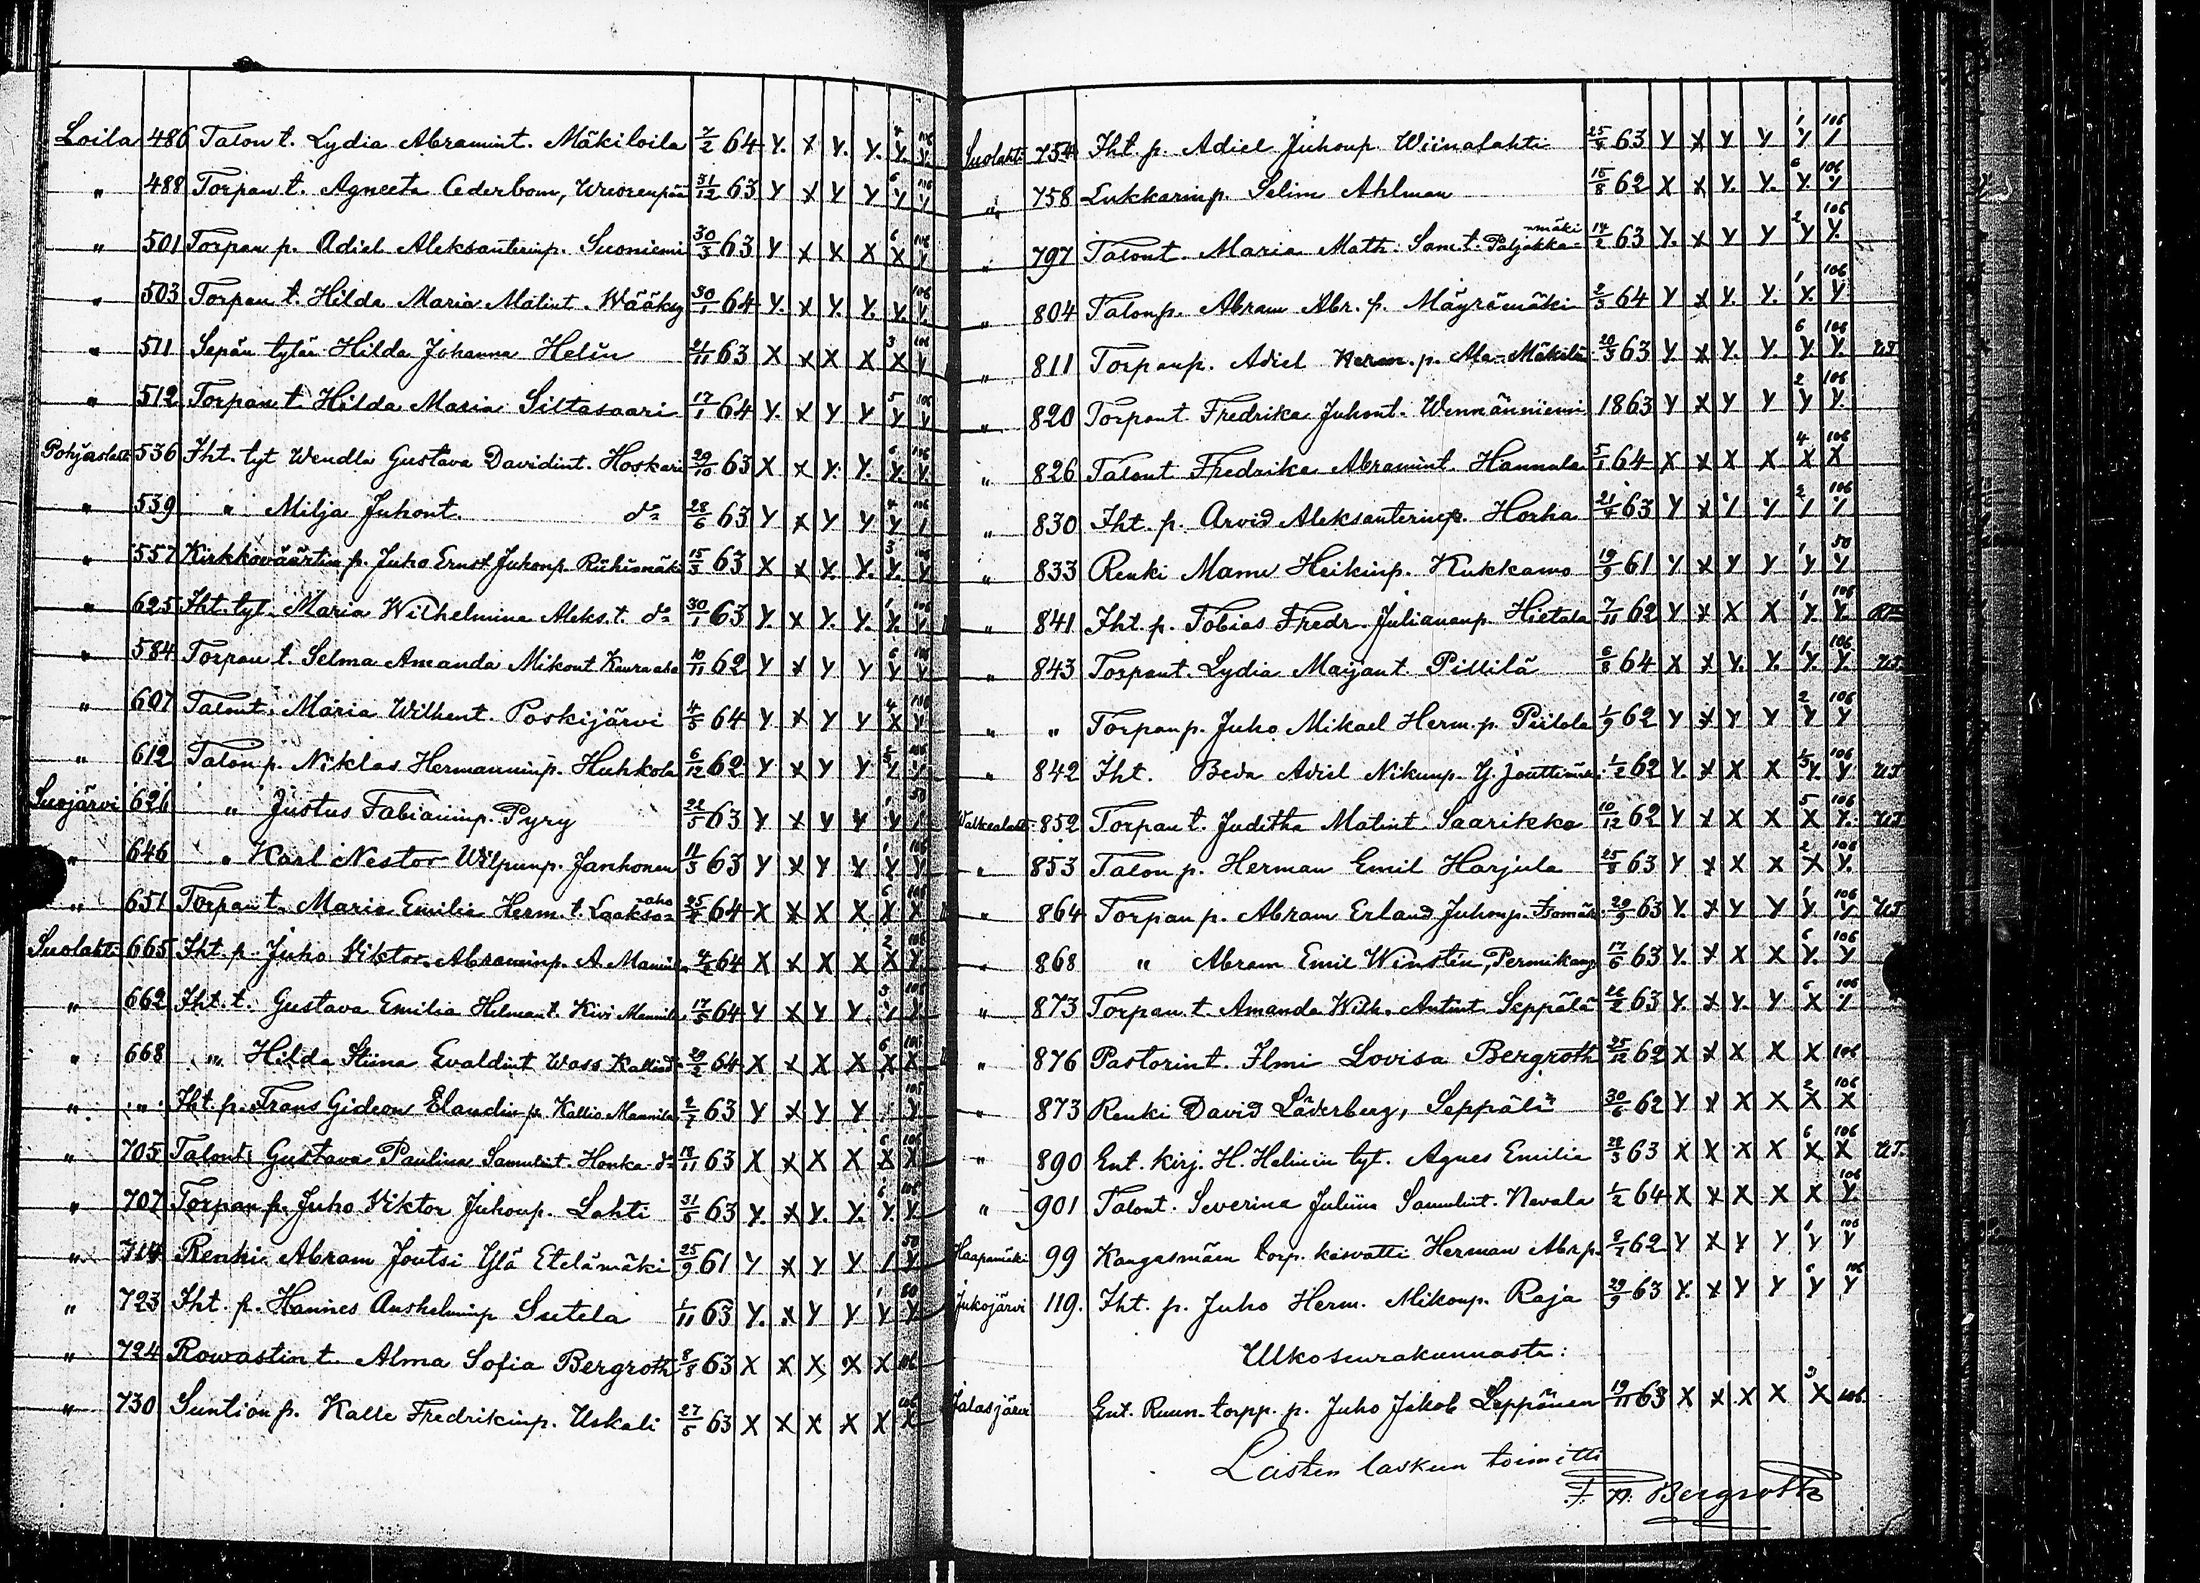 Loila 486 Talon t. Lydia Abramint. Mäkiloila 7/2 64 Y. X Y. Y. Y. 106 Y.
" 488 Torpan t. Agneeta Cederbom, 31/12 63 Y X Y Y 6 Y 106 Y
" 501 Torpan p. Adiel Aleksanterinp. Suoniemi 30/3 63 Y X X X 6 X 106 Y
" 503 Torpan t. Hilda Maria Matint. Wääky 30/1 64 Y. X Y. Y. Y. 106 Y.
" 511 Sepän tytär Hilda Johanna Helin 63 X X X X 3 X 106 Y
" 512 Torpan t. Hilda Maria Siltasaari 17/1 64 Y. X Y Y 5 Y 106 Y
Pohjaslaht 536 Iht. tyt Wendla Gustava Davidint. Hoskari 29/10 63 X X Y. Y. 6 Y. 106 Y.
" 539 " Milja Juhont. do 28/6 63 Y X Y Y 4 Y 106 Y
" 557 Kirkkowäärtin p. Juho Ernst Juhonp. Riihimäki 15/3 63 X X Y. Y. 3 Y. 106 Y
" 625 Iht. tyt. Maria Wilhelmina Aleks. t. do 30/1 63 Y. X Y. Y. 1 Y. 106 Y.
" 584 Torpan t. Selma Amanda Mikont. 10/11 62 Y X Y Y 6 Y 106 Y
" 607 Talont. Maria Wilhent. Poskijärvi 4/5 64 Y X Y Y 4 X 106 Y
" 612 Talon p. Niklas Hermanninp. Huhkola 6/12 62 Y X Y Y Y 106 Y
Suojärvi 626 " Justus Fabianinp. Pyry 22/5 63 Y X Y Y 1 Y 50
" 646 " Karl Nestor Wilpunp. Janhonen 11/3 63 Y X Y Y 1 Y 106 Y
" 651 Torpan t. Maria Emilia Herm. t. Laaksoaho 64 X X X X 6 X 106 X
Suolahti 665 Iht. p. Juho Viktor Abraminp. A Mannil. 64 X X X X 2 X 106 Y.
" 662 Iht. t. Gustava Emilia Helmant. Kivi Mannil. 17/5 64 Y X Y Y 3 Y 106 Y
" 668 " Hilda Stiina Evaldint 29/2 64 X X X X 6 X 106 X
" " Iht. p. Frans Gideon Elandin p. Kallio Mannila 63 Y X Y Y 106 Y
" 705 Talont. Gustava Paulina Samulint. Honka 18/11 63 X X X X 6 X 106 X
" 707 Torpan p. Juho Viktor Juhonp. Lahti 31/5 63 Y. X Y. Y. 6 Y. 106 Y.
" 714 Renki Abram Joutsi Ylä Etelämäki 25/9 61 Y X Y Y 50 Y
" 723 Iht. p. Hannes Anshelminp Sutela 1/11 63 Y. X Y Y 1 Y 50 Y.
" 724 Rowastin t. Alma Sofia Bergroth 8/8 63 X X X X X 106
" 730 Suntion p. Kalle Fredrikinp. Uskali 27/5 63 X X X X X 106 X
Suolahti 754 Iht. p. Adiel Juhonp. Wiinalahti 63 Y X Y Y 1 Y 106 Y
" 758 Lukkarinp. Selim Ahlman 15/8 62 X X Y. Y. 6 Y. 106 Y
" 797 Talont. Maria Math. Sam. t. Paljakkamäki 14/2 63 Y. X Y Y 2 Y 106 Y.
" 804 Talonp. Abram Abr. p. Mäyrämäki 2/3 64 Y X Y. Y. 1 Y. 106 Y
" 811 Torpanp. Adiel Herm. p. Ala-Mäkilä 20/3 63 Y X Y. Y. 6 Y. 106 Y. UT
" 820 Torpant Fredrika Juhont. Wenmänniemi 1863 Y X Y Y 2 Y 106 Y.
" 826 Talont Fredrika Abramint. Hannula 5/1 64 X X X X 4 X 106 X
" 830 Iht. p. Arvid Aleksanterinp. Horha 63 Y X Y Y 2 Y 106 Y
" 833 Renki Manu Heikinp. Kukkamo 19/9 61 Y X Y Y 1 Y 50 Y
" 841 Iht. p. Tobias Fredr. Juliananp. Hietala 7/11 62 Y X X X 1 Y. 106 Y.
" 843 Torpant. Lydia Maijant. Pittilä 6/8 64 X X Y. Y. 1 Y 106 Y. UT.
" " Torpanp. Juho Mikael Herm. p. Piilola 1/9 62 Y X Y Y 2 Y 106 Y
" 842 Iht. Beda Adiel Nikunp. Y. 1/2 62 Y X X X 5 Y 106 Y. UT
Walkealaht. 852 Torpan t. Juditha Matint. Saarikko 10/12 62 Y X X X 5 X 106 Y. UT
" 853 Talon p. Herman Emil Harjula 25/8 63 Y X X X 2 X 106 Y.
" 864 Torpan p. Abram Erland Juhonp. Isomäk. 29/9 63 Y. X Y Y 1 Y 106 Y UT
" 868 " Abram Emil Winstén, Permikang 17/6 63 Y. X X X 6 Y. 106 Y
" 873 Torpan t. Amanda Wilh. Antint. Seppälä 26/2 63 Y. X Y. Y 6 X 106 Y
" 876 Pastorin t. Ilmi Lovisa Bergroth 25/12 62 X X X X X 106
" 873 Renki David Säderberg, Seppälä 30/6 62 Y X X X 2 X 106 X
" 890 Ent. kirj. H. Helinin tyt. Agnes Emilia 28/3 63 X X X X 6 X 106 X UT.
" 901 Talont. Severina Juliina Samulint. Nevala 1/2 64 X X X X X 106 Y.
Haapamäki 99 Kangasmäen torp. kasvatti Herman Abr. p. 62 Y X Y Y 1 Y 106 Y
Jukojärvi 119. Iht. p. Juho Herm. Mikonp. Raja 29/9 63 Y. X Y Y 6 Y 106 Y
Ulkoseurakunnasta:
Jalasjärvi Ent. Ruun. torpp. p. Juho Jakob Leppänen 19/11 63 X X X X 3 X 106.
Lasten laskun toimitti
F. W. Bergroth